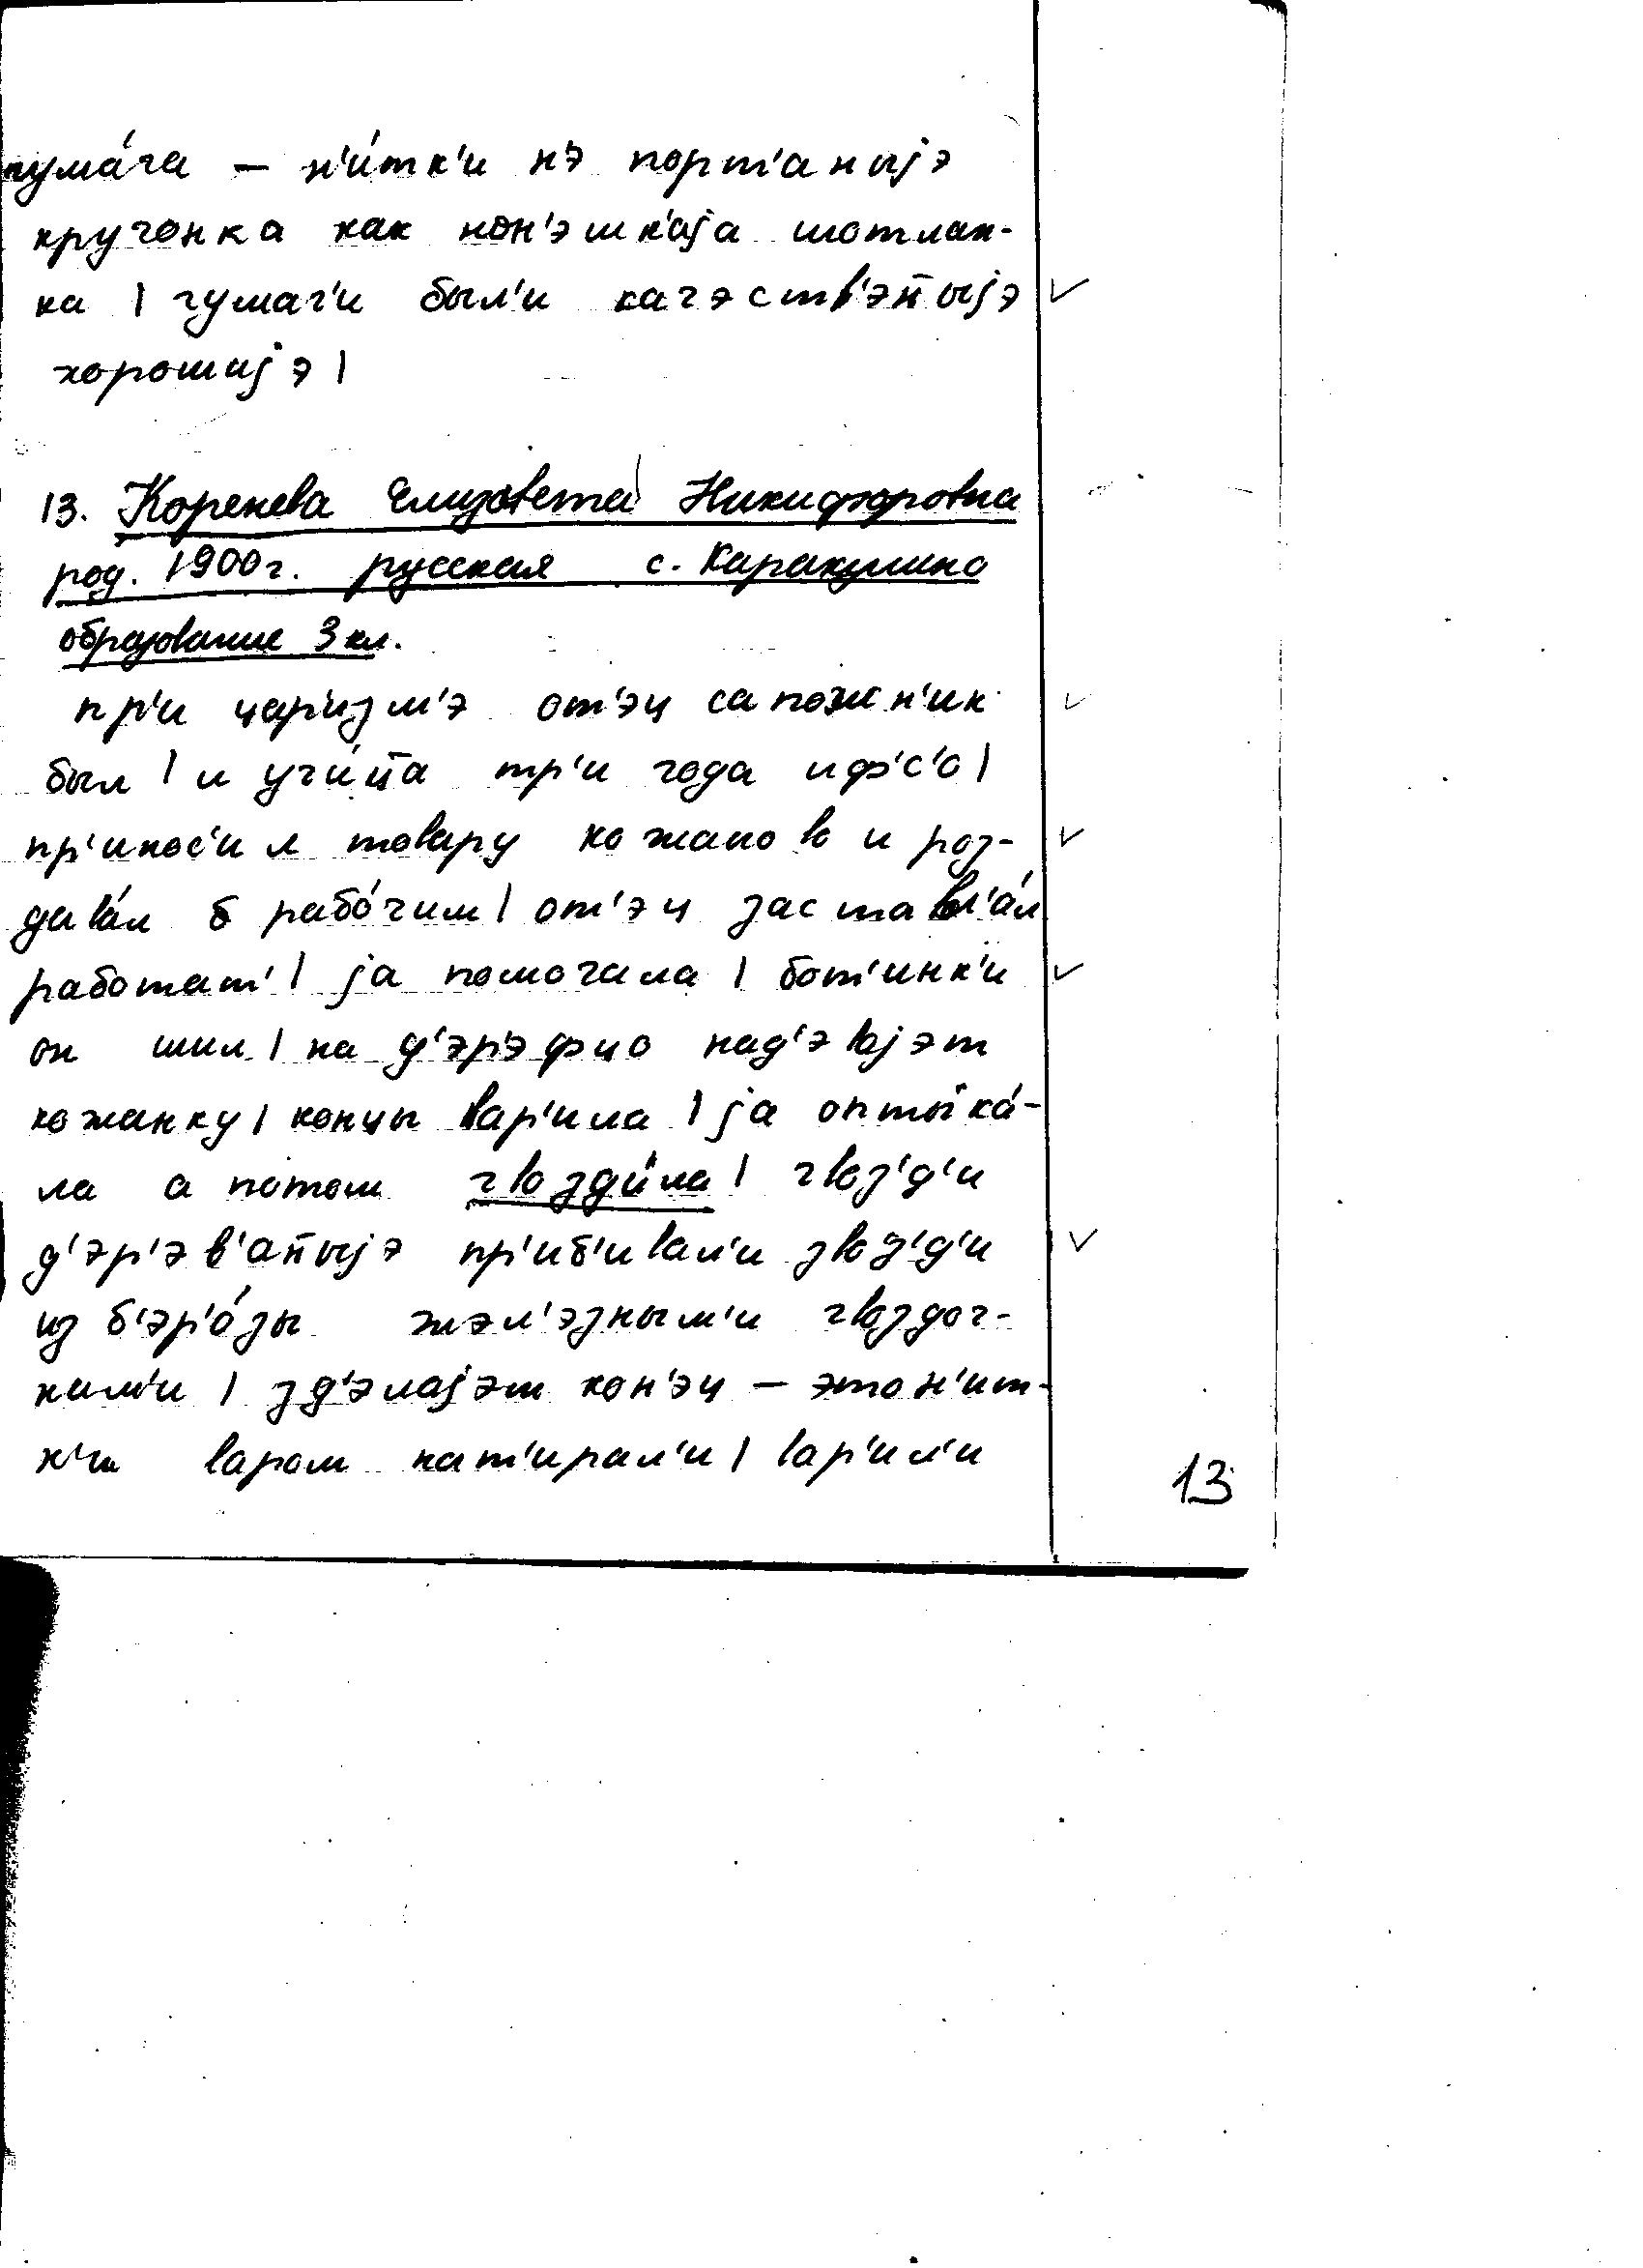 гума́га – н'и́тк'и н'э порт'аныjэ
кручонка как кон'эшн'аjа шотлан-
ка | гумаг'и был'и качэств'эн̄ыjэ
хорошиjэ |
13. Коренева Елизовета Никифоровна
род. 1900г. русская с. Каракулино
образование 3 кл.
пр'и цар'изм'э от'эц сапожн'ик
был | и учи́ц̄а тр'и года и ф'с'о |
пр'инос'ил товару кожаново и роз-
дава́л б рабо́чим | от'эц заставл'а́л
работат' | jа помогала | бот'инк'и
он шил | на д'эр'эфцо над'эваjэт
кожанку | концы вар'ила | jа оптыка́-
ла а потом гвозди́ла | гвоз'д'и
д'эр'эв'ан̄ыjэ пр'иб'ивал'и гвоз'д'и
из б'эр'о́зы жэл'эзным'и гвоздоч-
кам'и | зд'элаjэт кон'эц – это н'ит-
к'и варом нат'ирал'и | вар'ил'и
13